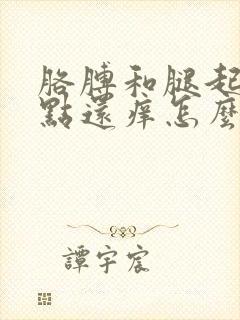 胳膊和腿起
點還痒怎麼
譚宇宸